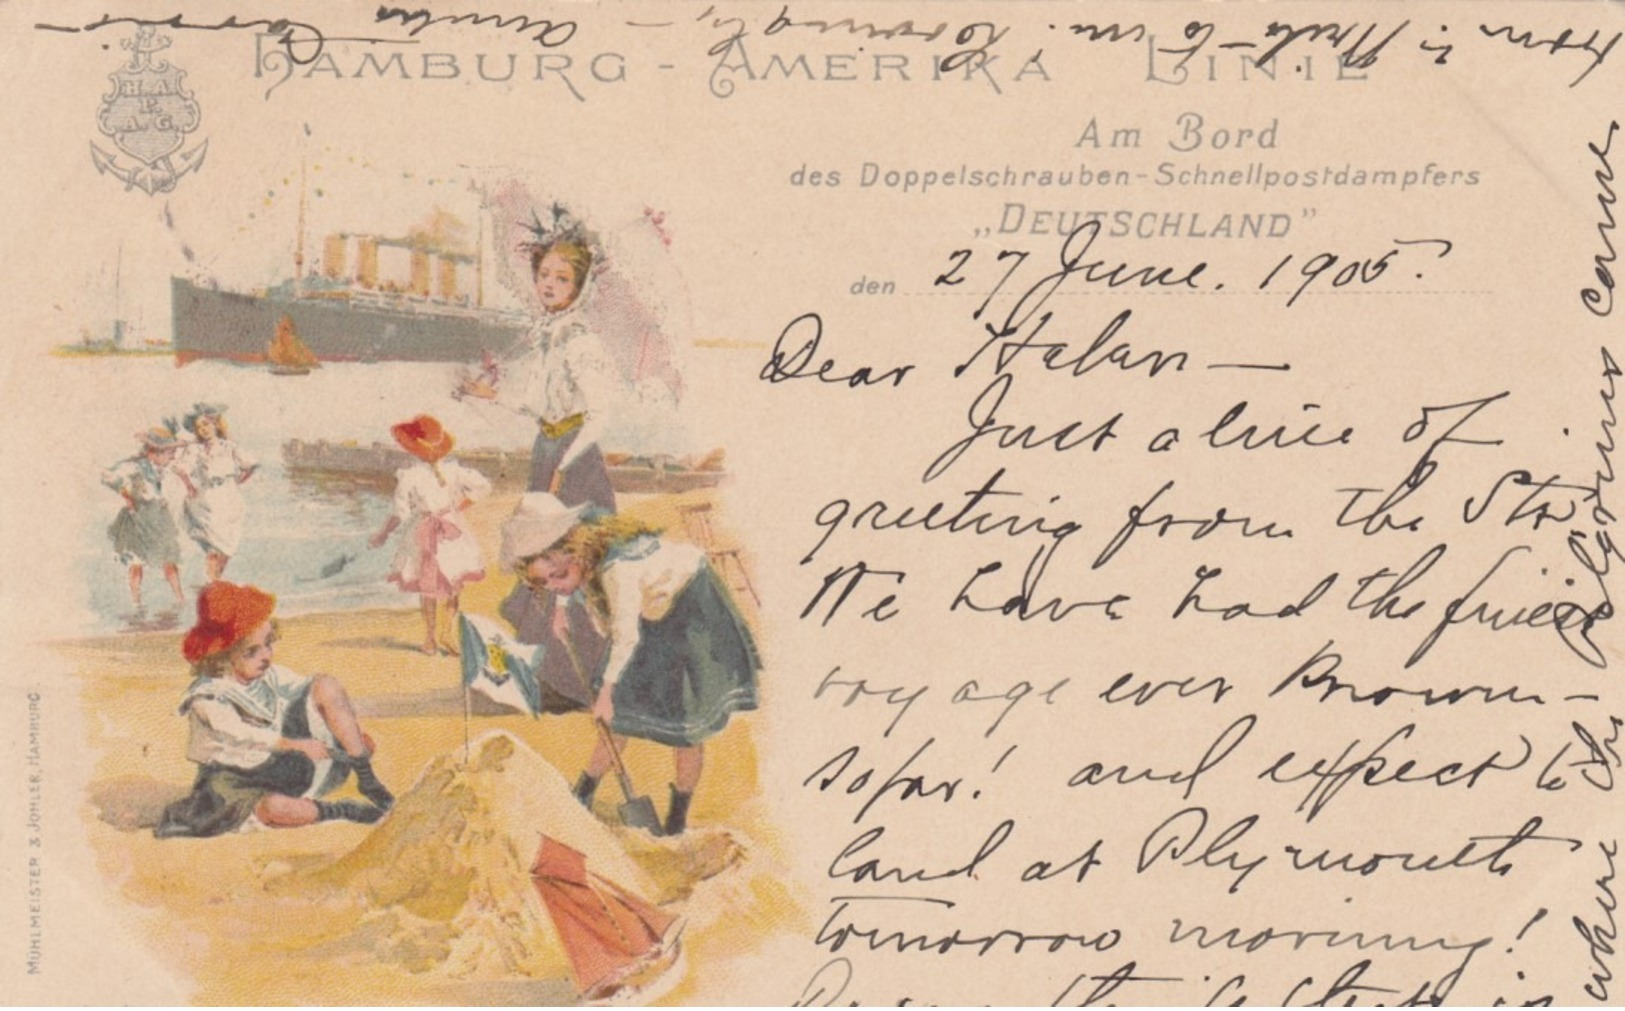 HAMBURG - AMERIKA LINIE
H.A.
P.
A.G.
Am Bord
des Doppelschrauben-Schnellpostdampfers
„DEUTSCHLAND”
den 27 June. 1905.
Dear Helen —
Just a line of
greeting from the Str
We have had the finest
voyage ever known —
so far! and expect to
land at Plymouth
tomorrow morning!
where the pilgrims came
from
MÜHLMEISTER & JOHLER, HAMBURG.